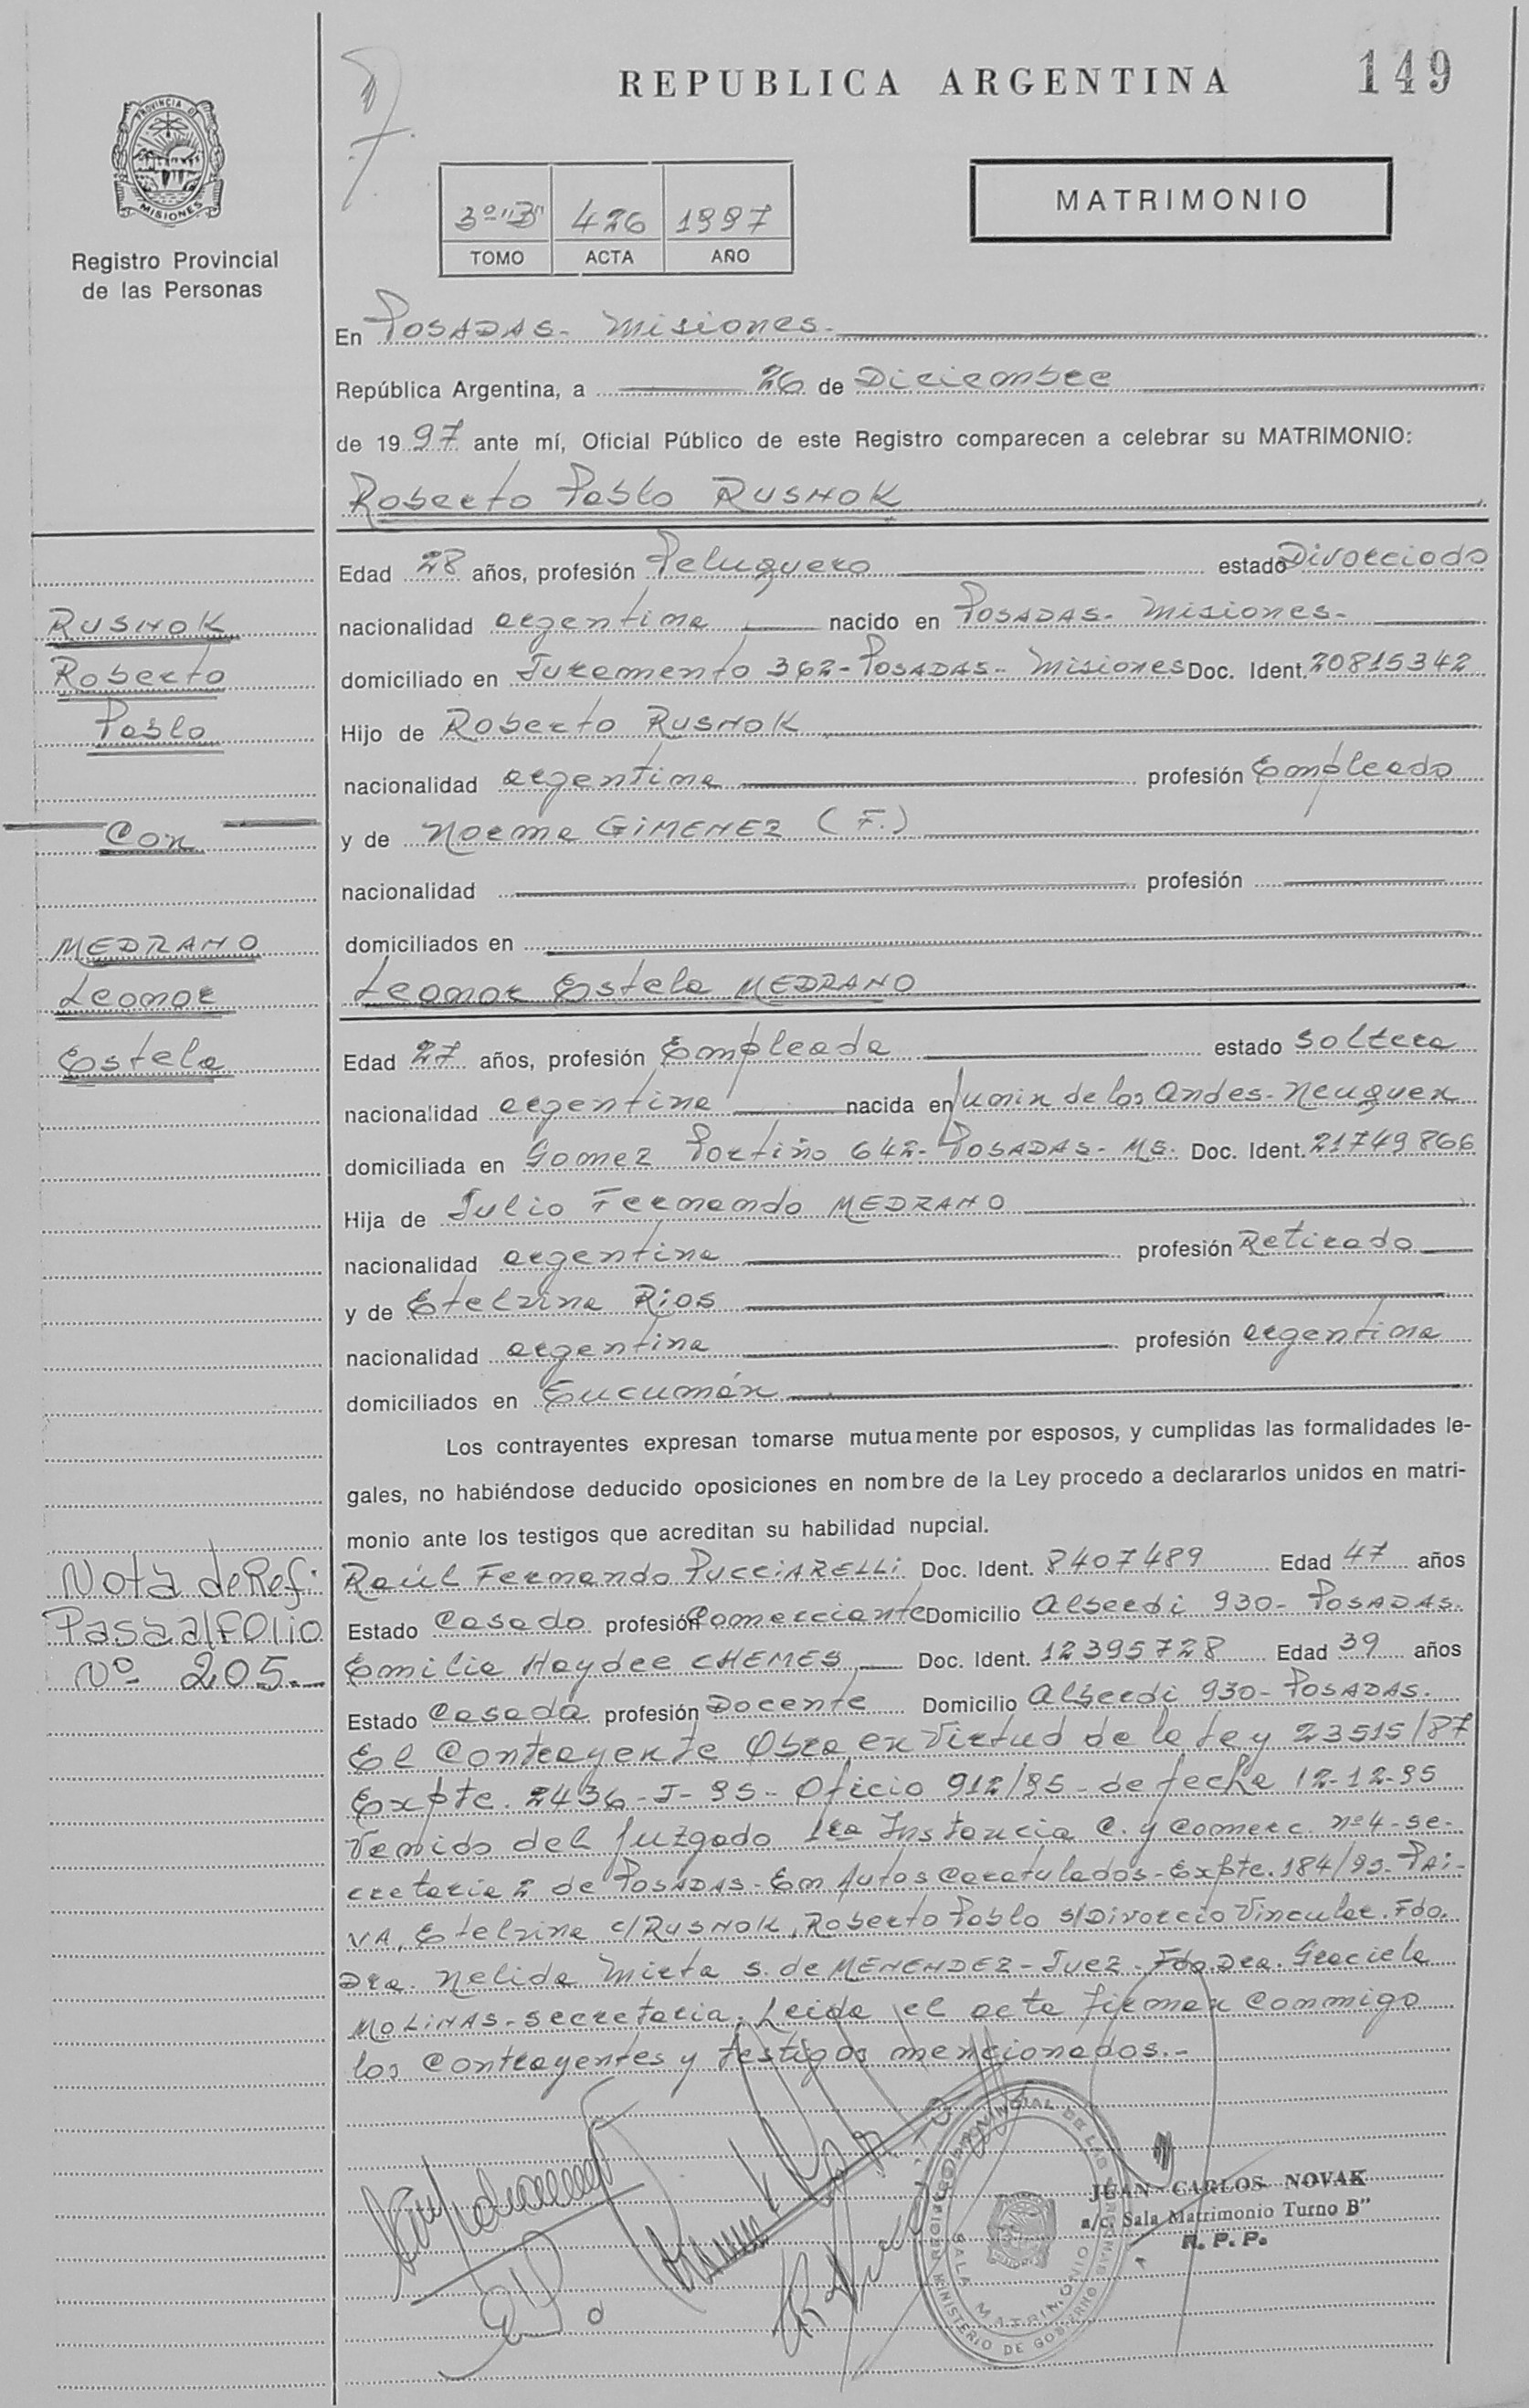 REPUBLICA ARGENTINA
149
PROVINCIA D
MISIONES
Registro Provincial
de las Personas
3º "B" 426 1997
TOMO ACTA AÑO
MATRIMONIO
En POSADAS- Misiones-
República Argentina, a 26 de Diciembre
de 1997 ante mí, Oficial Público de este Registro comparecen a celebrar su MATRIMONIO:
Roberto Pablo RUSNOK
Edad 28 años, profesión Peluquero estado Divorciado
nacionalidad argentina nacido en POSADAS- Misiones-
domiciliado en Juramento 362- POSADAS- Misiones Doc. Ident. 20815342
Hijo de Roberto RUSNOK
nacionalidad argentina profesión Empleado
y de Norma GIMENEZ (F.)
nacionalidad profesión
domiciliados en
Leonor Estela MEDRANO
Edad 27 años, profesión Empleada estado Soltera
nacionalidad argentina nacida en Junin de los Andes- Neuquen
domiciliada en Gomez Portiño 642- POSADAS- MS. Doc. Ident. 21749866
Hija de Julio Fernando MEDRANO
nacionalidad argentina profesión Retirado
y de Etelvina Rios
nacionalidad argentina profesión argentina
domiciliados en Tucumán
Los contrayentes expresan tomarse mutuamente por esposos, y cumplidas las formalidades le-
gales, no habiéndose deducido oposiciones en nombre de la Ley procedo a declararlos unidos en matri-
monio ante los testigos que acreditan su habilidad nupcial.
Raúl Fernando PUCCIARELLI Doc. Ident. 8407489 Edad 47 años
Estado Casado profesión Comerciante Domicilio Alberdi 930- POSADAS.
Emilia Haydee CHEMES Doc. Ident. 12395728 Edad 39 años
Estado Casada profesión Docente Domicilio Alberdi 930- POSADAS.
El Contrayente Obra en Virtud de la Ley 23515/87
Expte. 2436-J-95- Oficio 912/95- de fecha 12-12-95
Venido del Juzgado 1ra Instancia C. y Comerc. nº4- Se-
cretaria 2 de POSADAS- En Autos Caratulados- Expte. 184/95- PAI-
VA, Etelvina c/RUSNOK, Roberto Pablo s/Divorcio Vincular. Fdo.
Dra. Nelida Mirta S. de MENENDEZ- Juez- Fdo Dra. Graciela
MOLINAS- Secretaria. Leida el acta firman Conmigo
los Contrayentes y testigos mencionados.-
RUSNOK
Roberto
Pablo
Con
MEDRANO
Leonor
Estela
Nota de Ref:
Pasa al FOlio
Nº 205.-
REGISTRO PROVINCIAL DE LAS PERSONAS
SALA MATRIMONIO
MINISTERIO DE GOBIERNO
JUAN CARLOS NOVAK
a/c. Sala Matrimonio Turno B"
R. P. P.